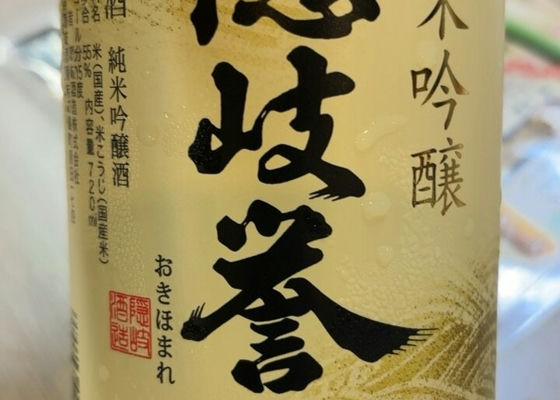 米吟醸
隠岐誉
おきほまれ
隠岐酒造
純米吟醸酒
米(国産)、米こうじ(国産米)
合 55% 内容量720ml
アルコール分15度